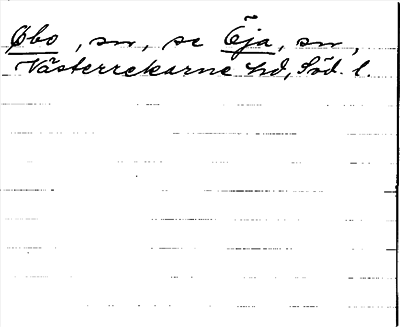 Öbo, sn, se Öja, sn,
Västerrekarne hd, Söd. l.